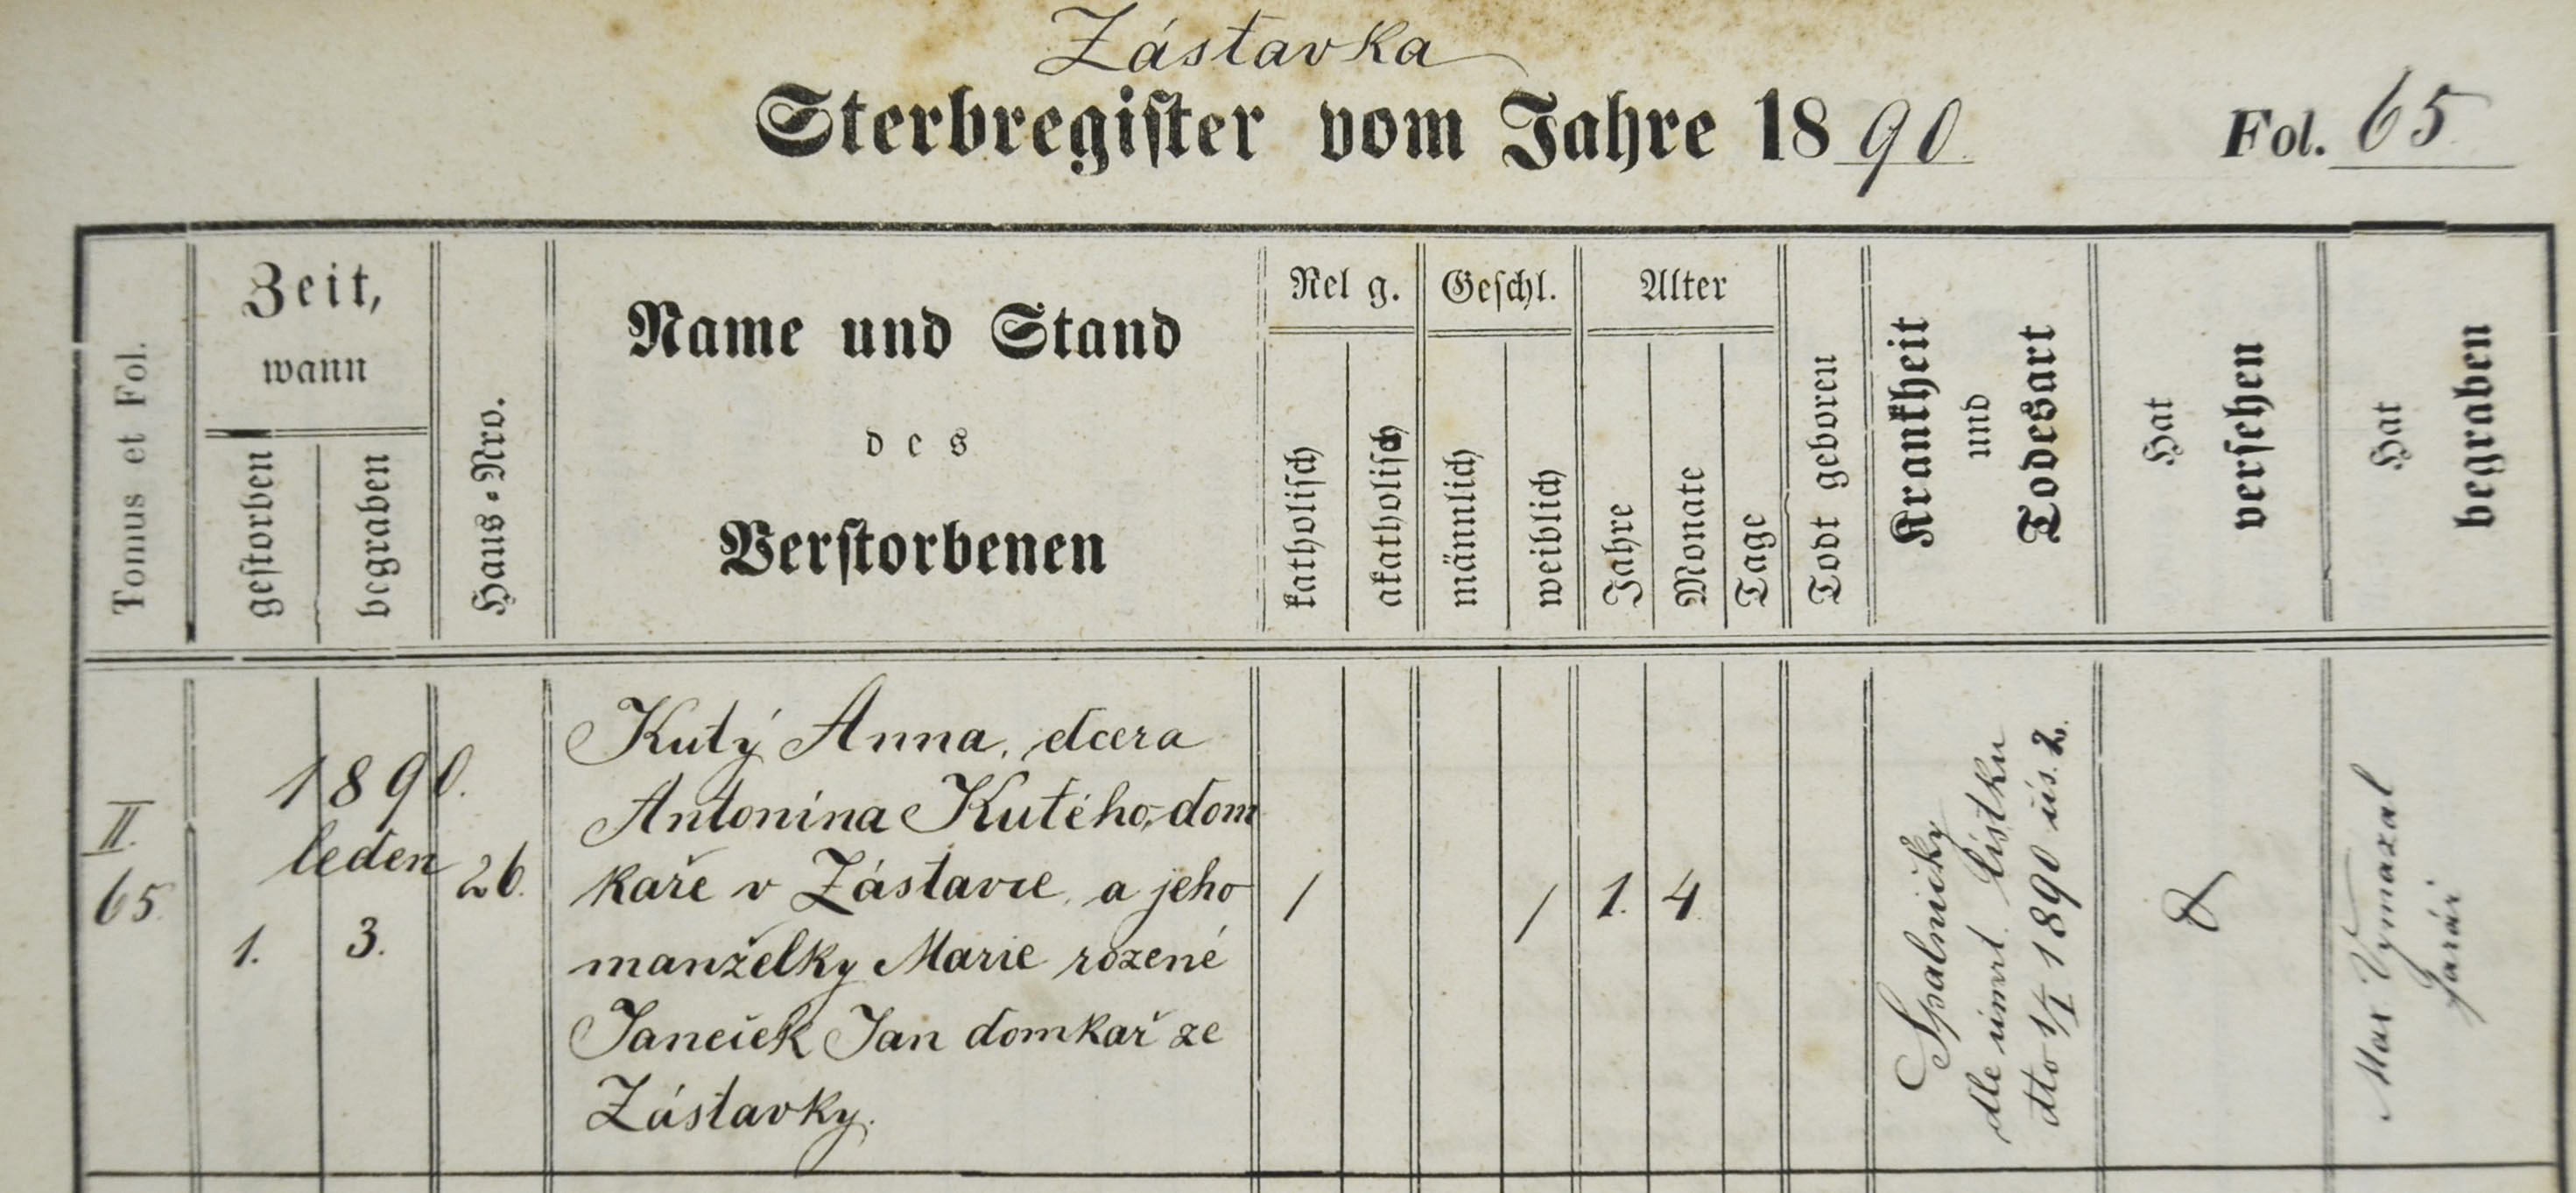 Zástavka
Sterbregister vom Jahre 1890. Fol. 65
Tomus et Fol.
Zeit,
wann
gestorben
begraben
Haus-Nro.
Name und Stand
des
Verstorbenen
Rel g.
katholisch
akatholisch
Geschl.
männlich
weiblich
Alter
Jahre
Monate
Tage
Todt geboren
Krankheit
und
Todesart
Hat
versehen
Hat
begraben
II.
65
1890.
leden
1. 3.
26.
Kutý Anna, dcera
Antonína Kutého, dom
kaře v Zástavce, a jeho
manželky Marie rozené
Janeček Jan domkař ze
Zástavky.
/
/
1. 4
Spalničky
dle úmrt. lístku
dtto 1/I 1890 čís. 2.
Max Vymazal
farář